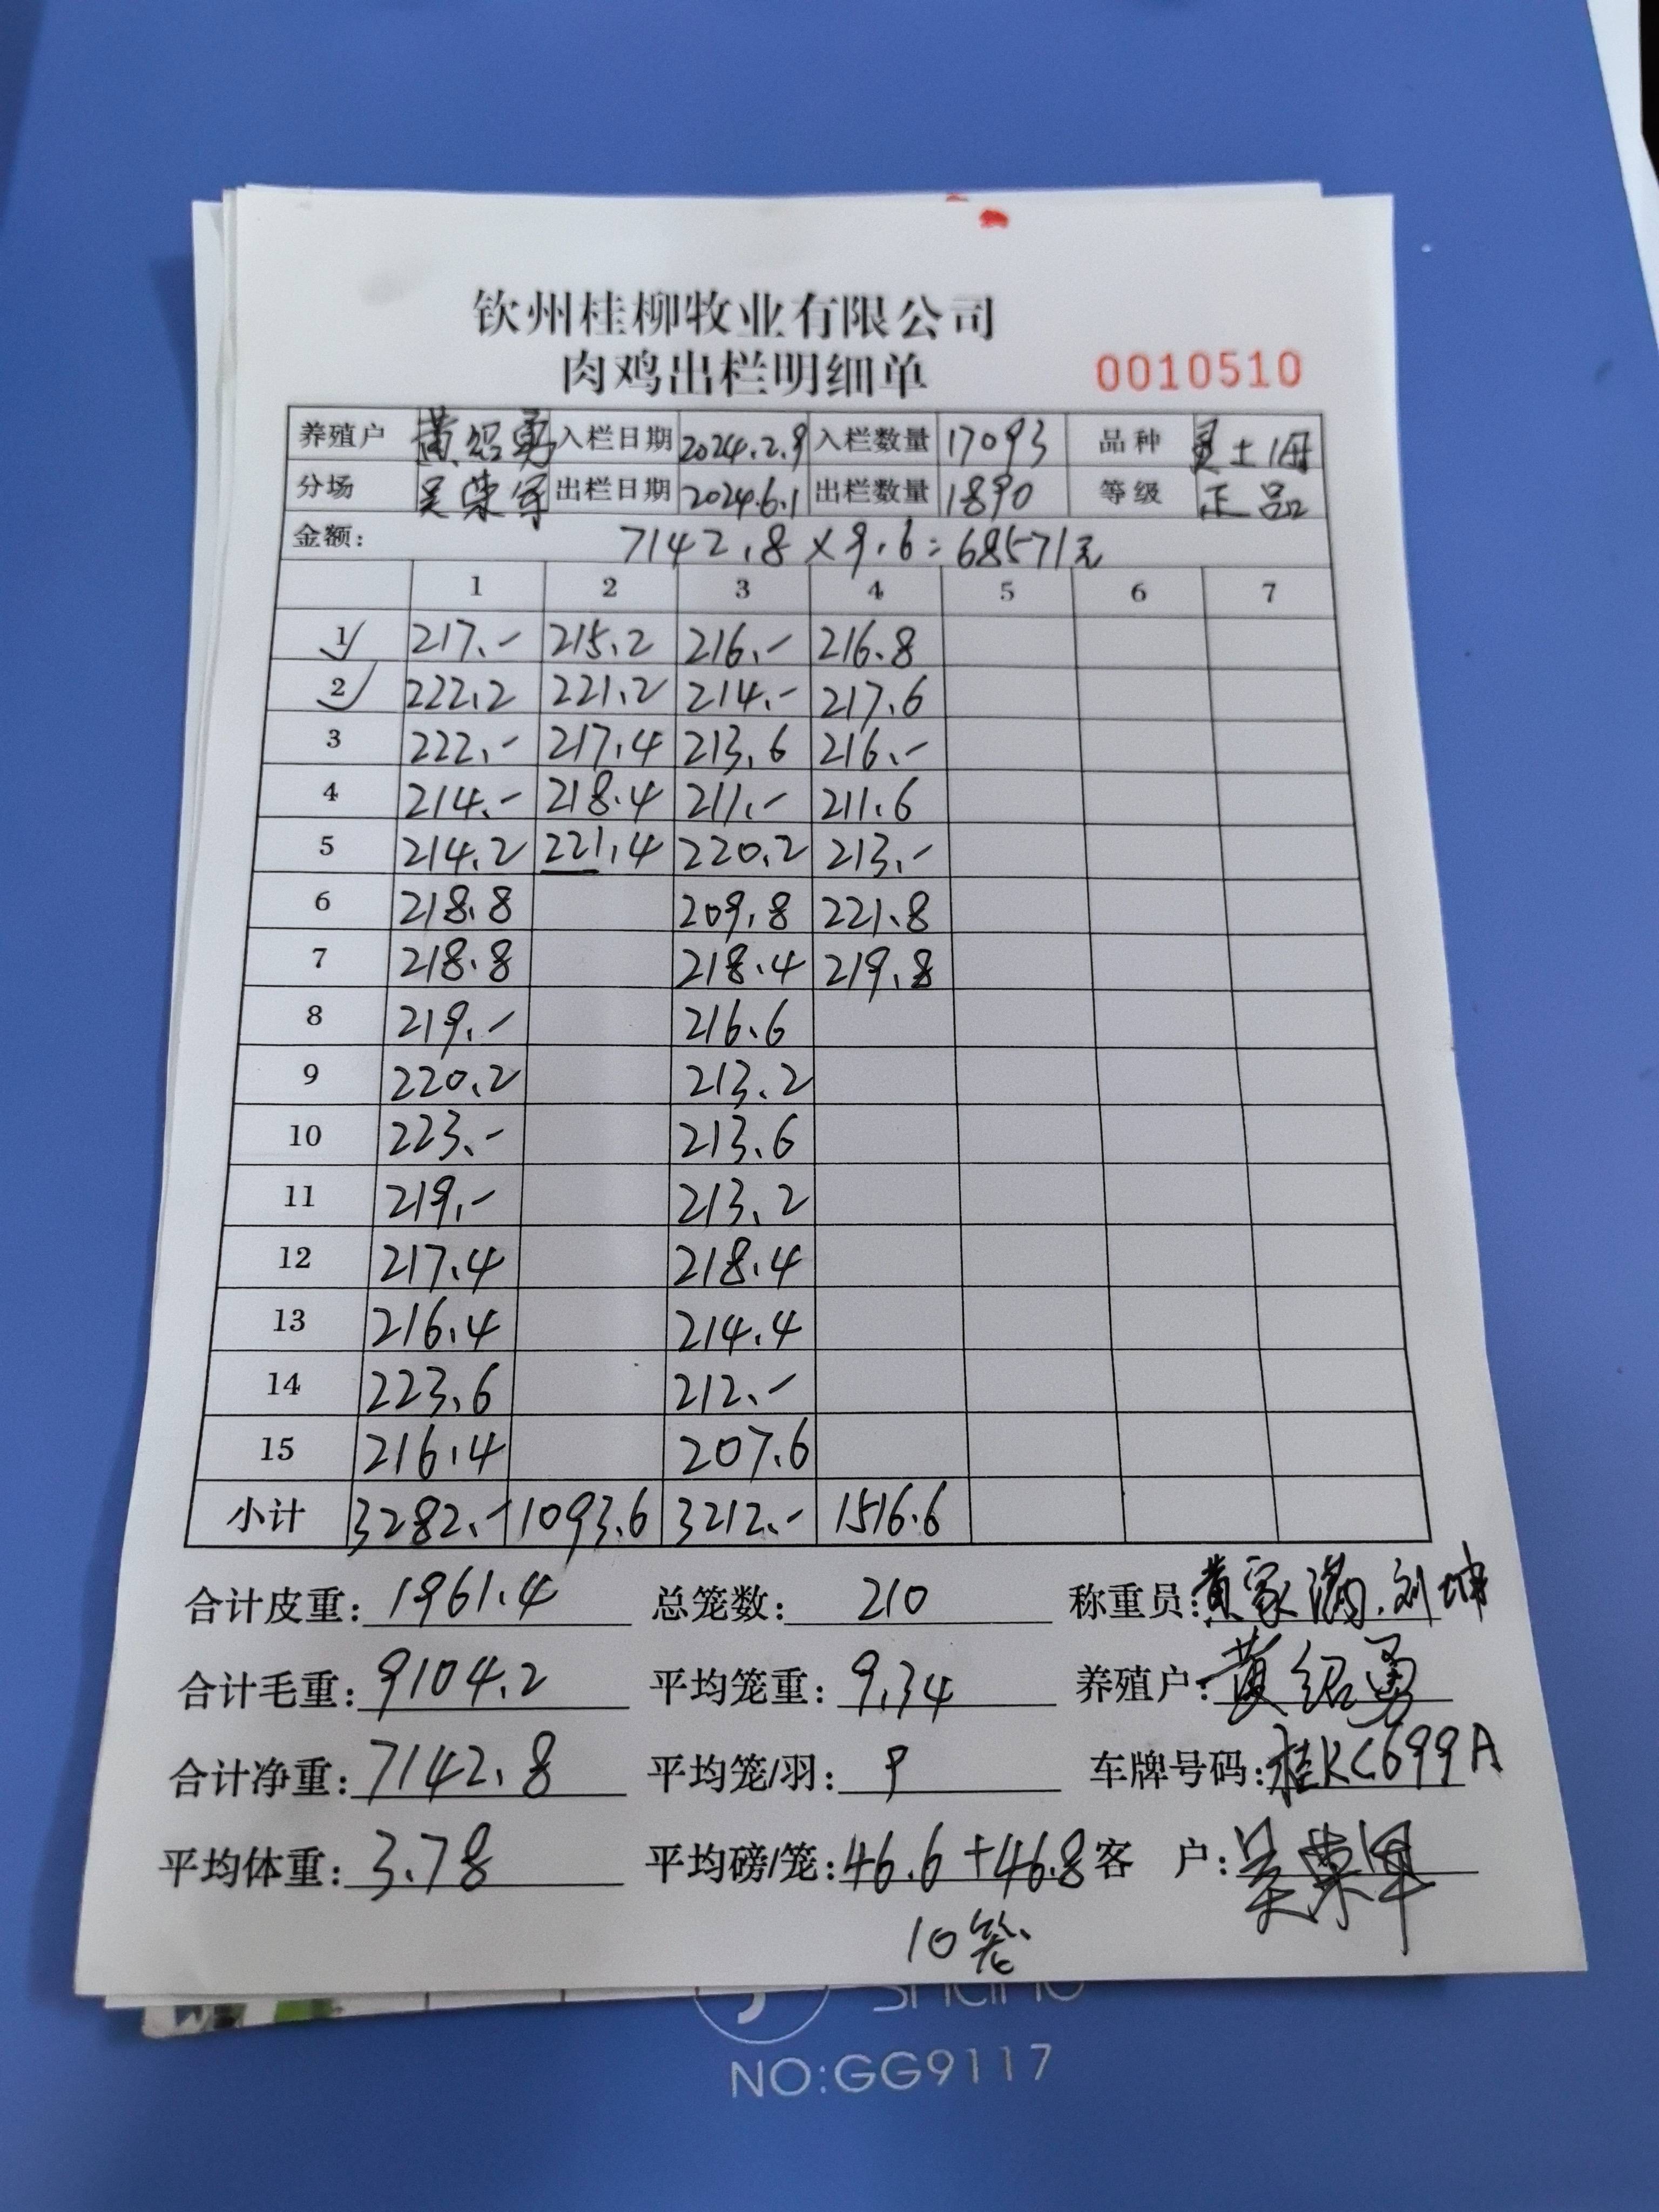 钦州桂柳牧业有限公司
肉鸡出栏明细单 0010510
养殖户 黄绍勇 入栏日期 2024.2.9 入栏数量 17093 品种 灵土1母
分场 吴荣军 出栏日期 2024.6.1 出栏数量 1890 等级 正品
金额: 7142.8×9.6=68571元
1 2 3 4 5 6 7
1 217.- 215.2 216.- 216.8
2 222.2 221.2 214.- 217.6
3 222.- 217.4 213.6 216.-
4 214.- 218.4 211.- 211.6
5 214.2 221.4 220.2 213.-
6 218.8 209.8 221.8
7 218.8 218.4 219.8
8 219.- 216.6
9 220.2 213.2
10 223.- 213.6
11 219.- 213.2
12 217.4 218.4
13 216.4 214.4
14 223.6 212.-
15 216.4 207.6
小计 3282.- 1093.6 3212.- 1516.6
合计皮重: 1961.4 总笼数: 210 称重员: 黄家满.刘坤
合计毛重: 9104.2 平均笼重: 9.34 养殖户: 黄绍勇
合计净重: 7142.8 平均笼/羽: 9 车牌号码: 桂KC699A
平均体重: 3.78 平均磅/笼: 46.6+46.8 客 户: 吴荣军
10笼
NO:GG9117